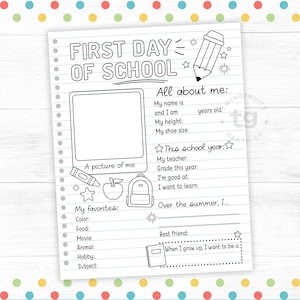 FIRST DAY
OF SCHOOL
All about me:
My name is
and I am years old.
My height:
My shoe size:
A picture of me
This school year:
My teacher:
Grade this year:
I'm good at:
I want to learn:
My favorites:
Color:
Food:
Movie:
Animal:
Hobby:
Subject:
Over the summer, I...
Best friend:
When I grow up, I want to be a
tg